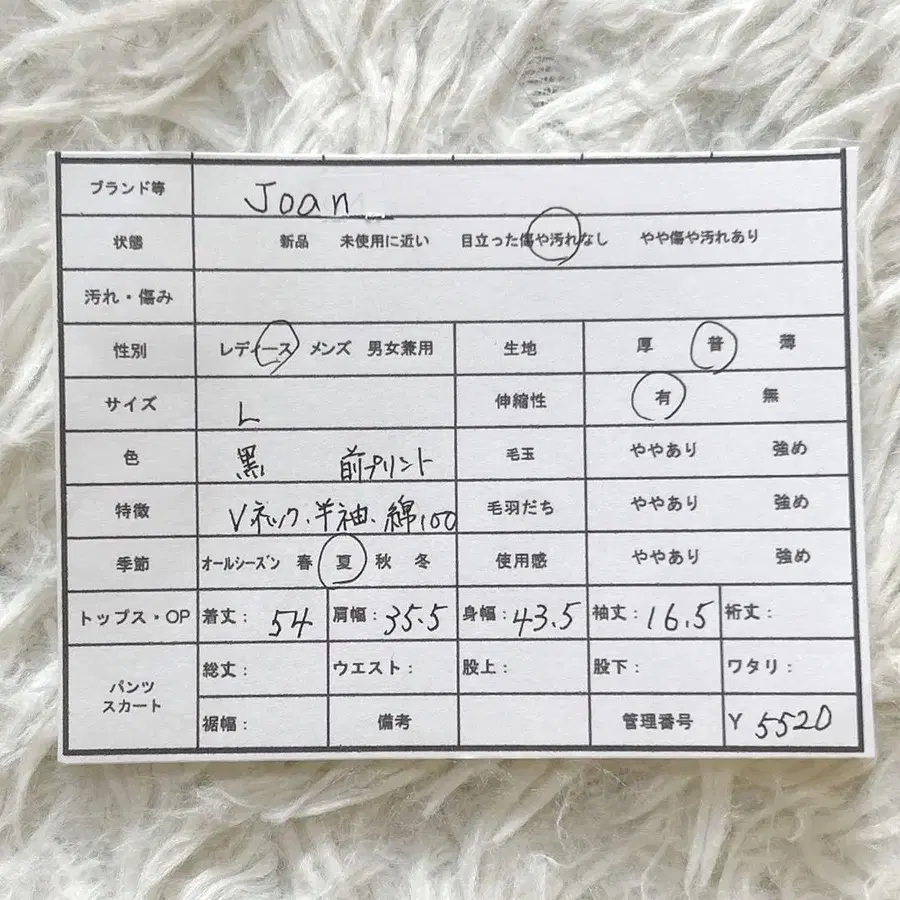 ブランド等 Joan
状態 新品 未使用に近い 目立った傷や汚れなし やや傷や汚れあり
汚れ・傷み
性別 レディース メンズ 男女兼用 生地 厚 普 薄
サイズ L 伸縮性 有 無
色 黒 前プリント 毛玉 ややあり 強め
特徴 Vネック、半袖、綿100 毛羽だち ややあり 強め
季節 オールシーズン 春 夏 秋 冬 使用感 ややあり 強め
トップス・OP 着丈: 54 肩幅: 35.5 身幅: 43.5 袖丈: 16.5 裄丈:
パンツ スカート 総丈: ウエスト: 股上: 股下: ワタリ:
裾幅: 備考 管理番号 Y 5520